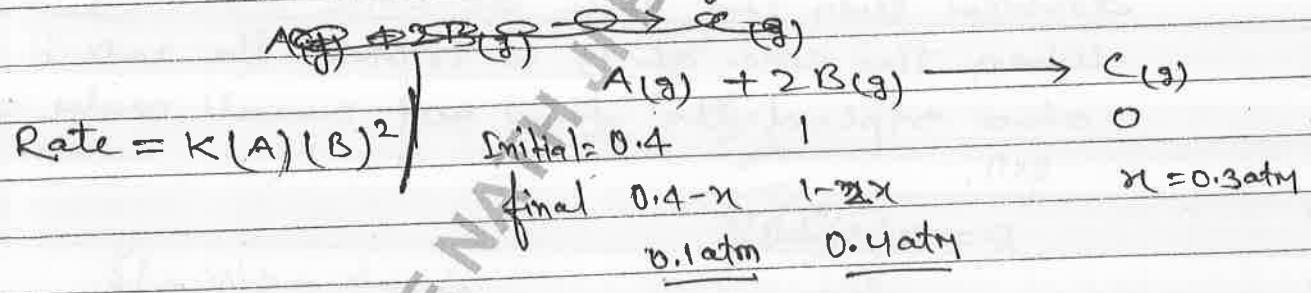 A(g) + 2B(g) → C(g)
A(g) + 2B(g) → C(g)
Rate = K(A)(B)² Initial = 0.4 1 0
final 0.4-x 1-2x x = 0.3 atm
0.1 atm 0.4 atm